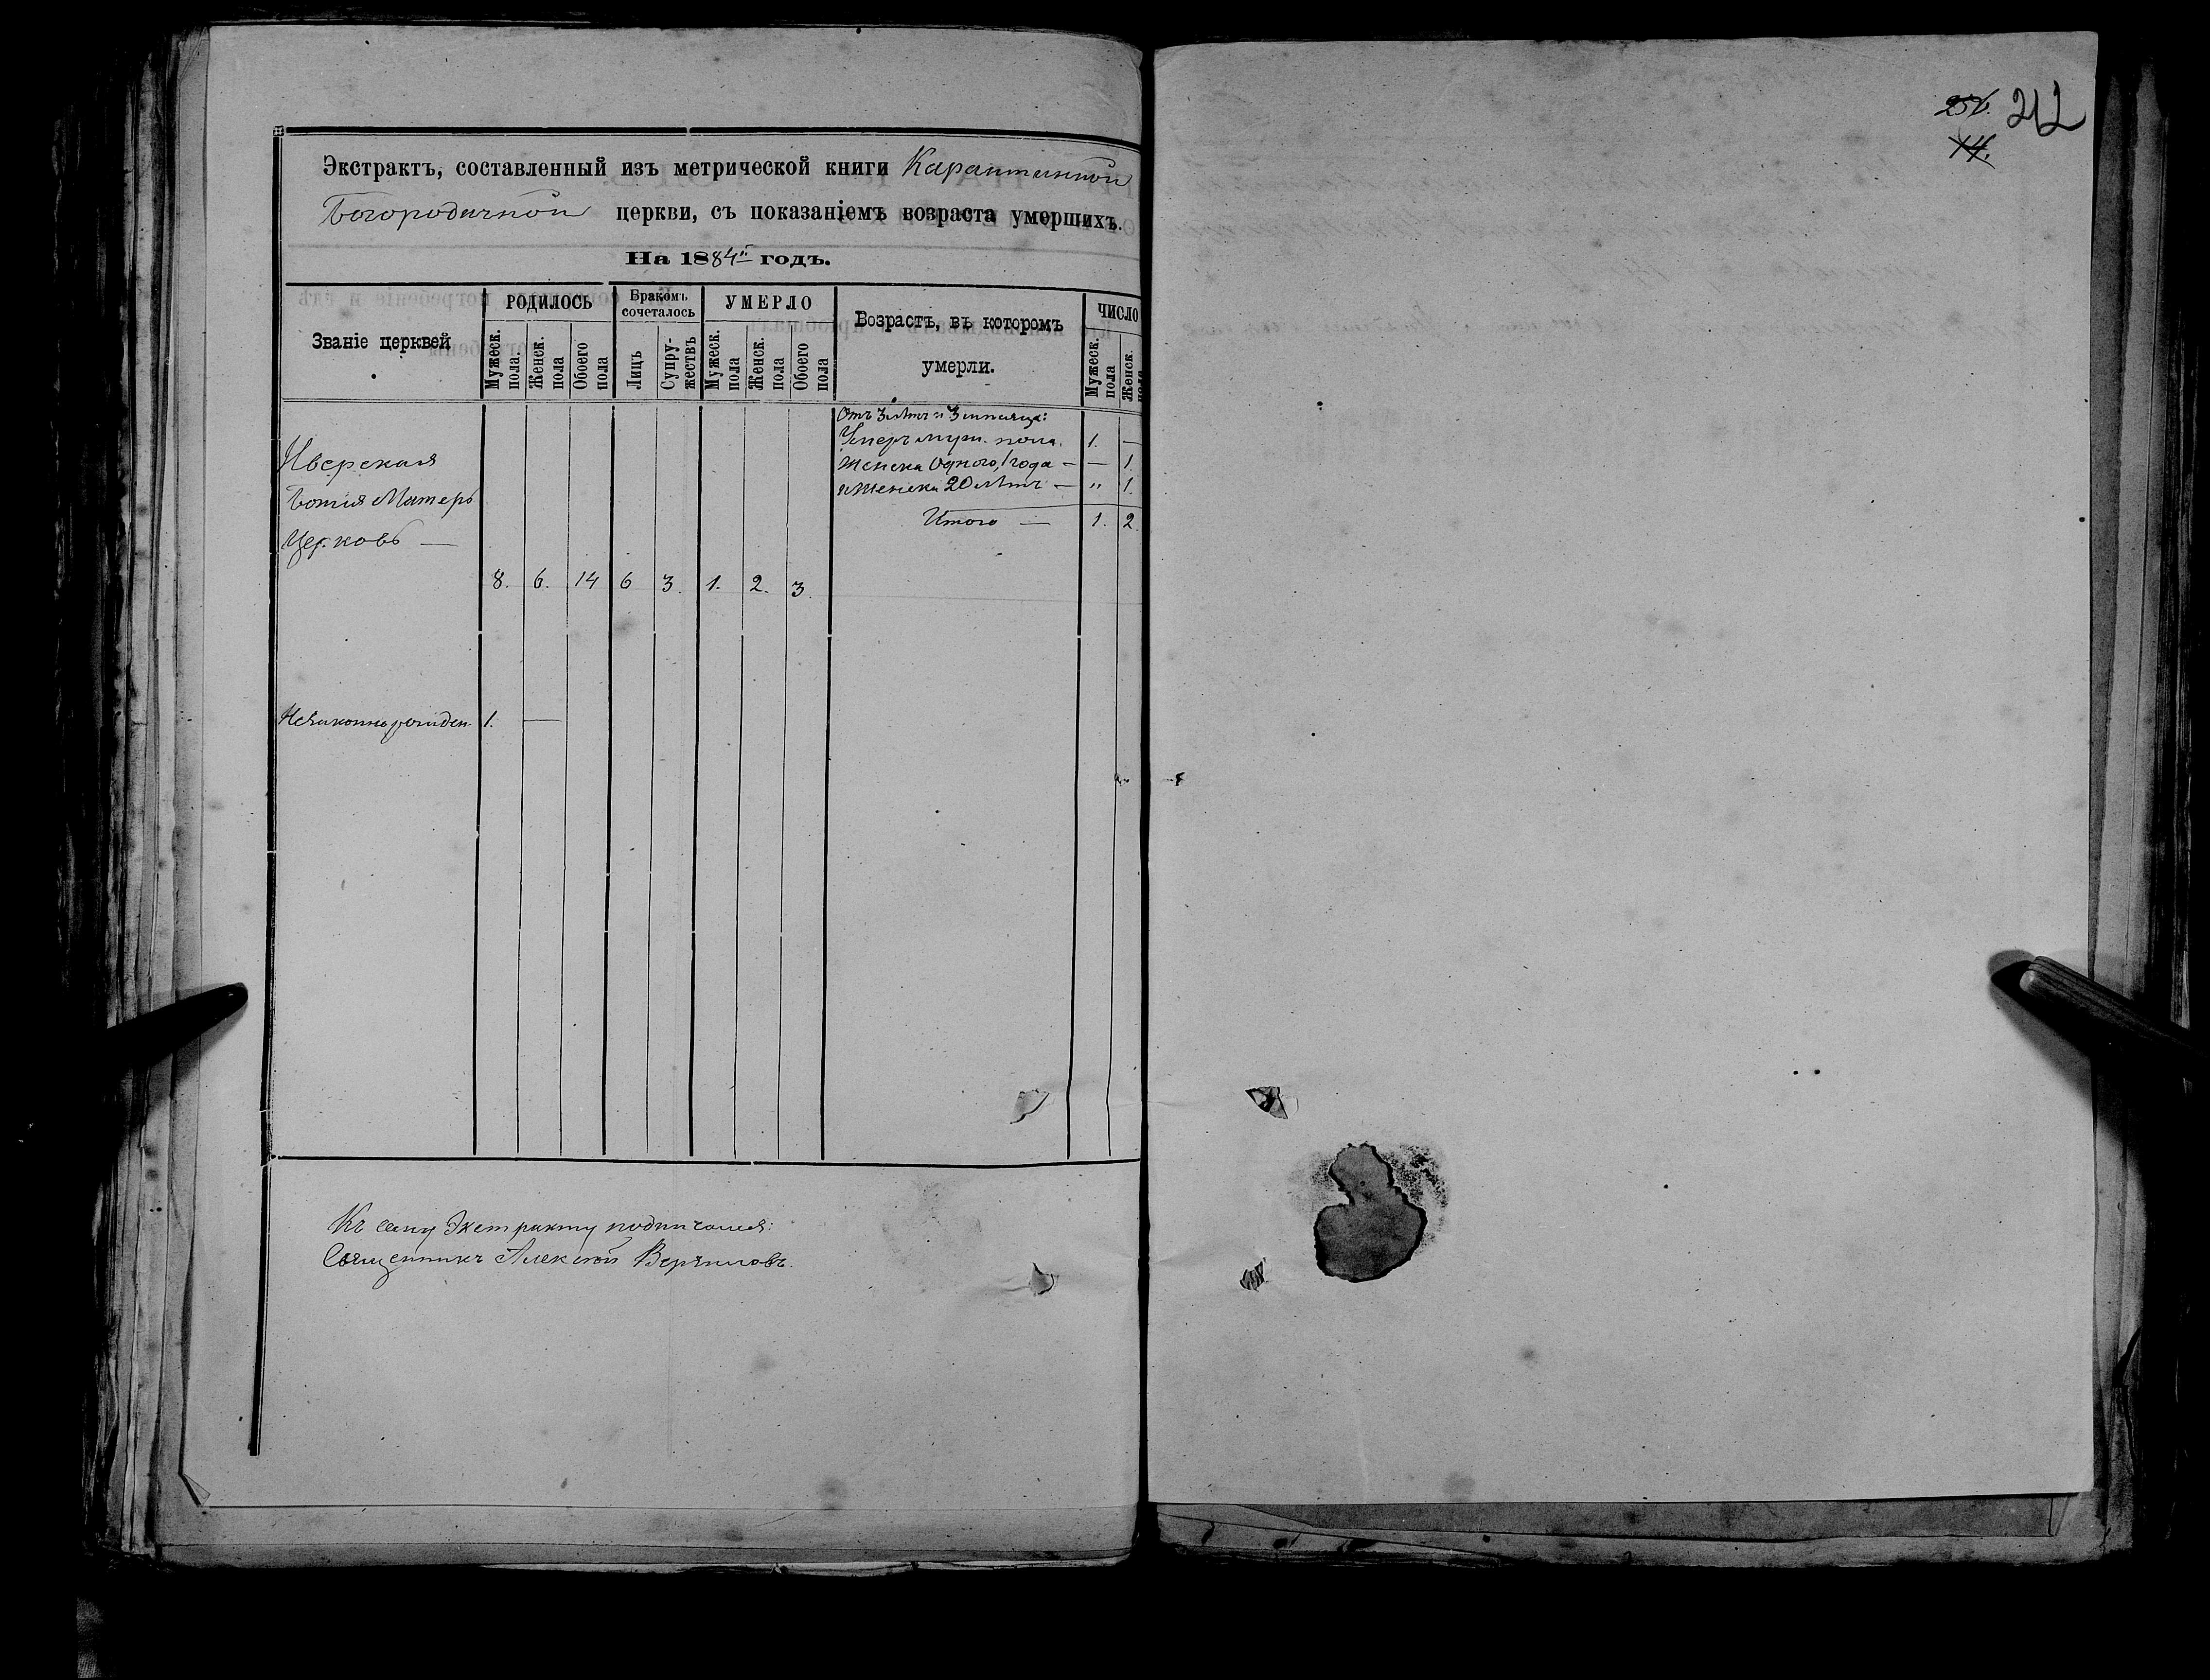 Экстрактъ, составленный изъ метрической книги Карантинной
Богородичной церкви, съ показаніемъ возраста умершихъ.
На 1884й годъ.
Званіе церквей
РОДИЛОСЬ
Мужеск. пола.
Женск. пола
Обоего пола
Бракомъ сочеталось
Лицъ
Супружествъ
УМЕРЛО
Мужеск. пола
Женск. пола
Обоего пола
Возрастъ, въ которомъ
умерли.
ЧИСЛО
Мужеск. пола
Женск. пола
Отъ 3 лѣтъ и 3 мѣсяца:
Умеръ муж. пола. 1. —
Иверская
женска одного, 1 года — — 1.
Божія Матерь
и женска 20 лѣтъ — " 1.
Итого — 1. 2.
Церковь —
8. 6. 14 6 3. 1. 2. 3.
Незаконнорожден. 1. —
Къ сему Экстракту подписался:
Священникъ Алексій
256. 212
14.